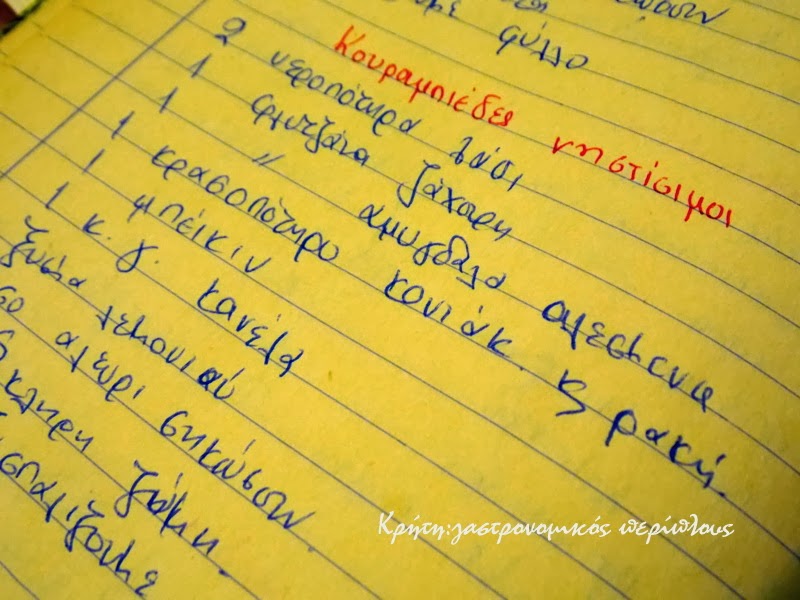 φύλλο
Κουραμπιέδες νηστίσιμοι
2 νεροπότηρα λάδι
1 φλυτζάνι ζάχαρη
1 " αμυγδαλα αλεσμενα
1 κρασοπότηρο κονιάκ. κ ρακή.
1 μπέικιν
1 κ. γ. κανέλα
ξύσμα λεμονιού
σο αλεύρι σηκώσουν.
σκληρη ζύμη.
Κρήτη:γαστρονομικός περίπλους